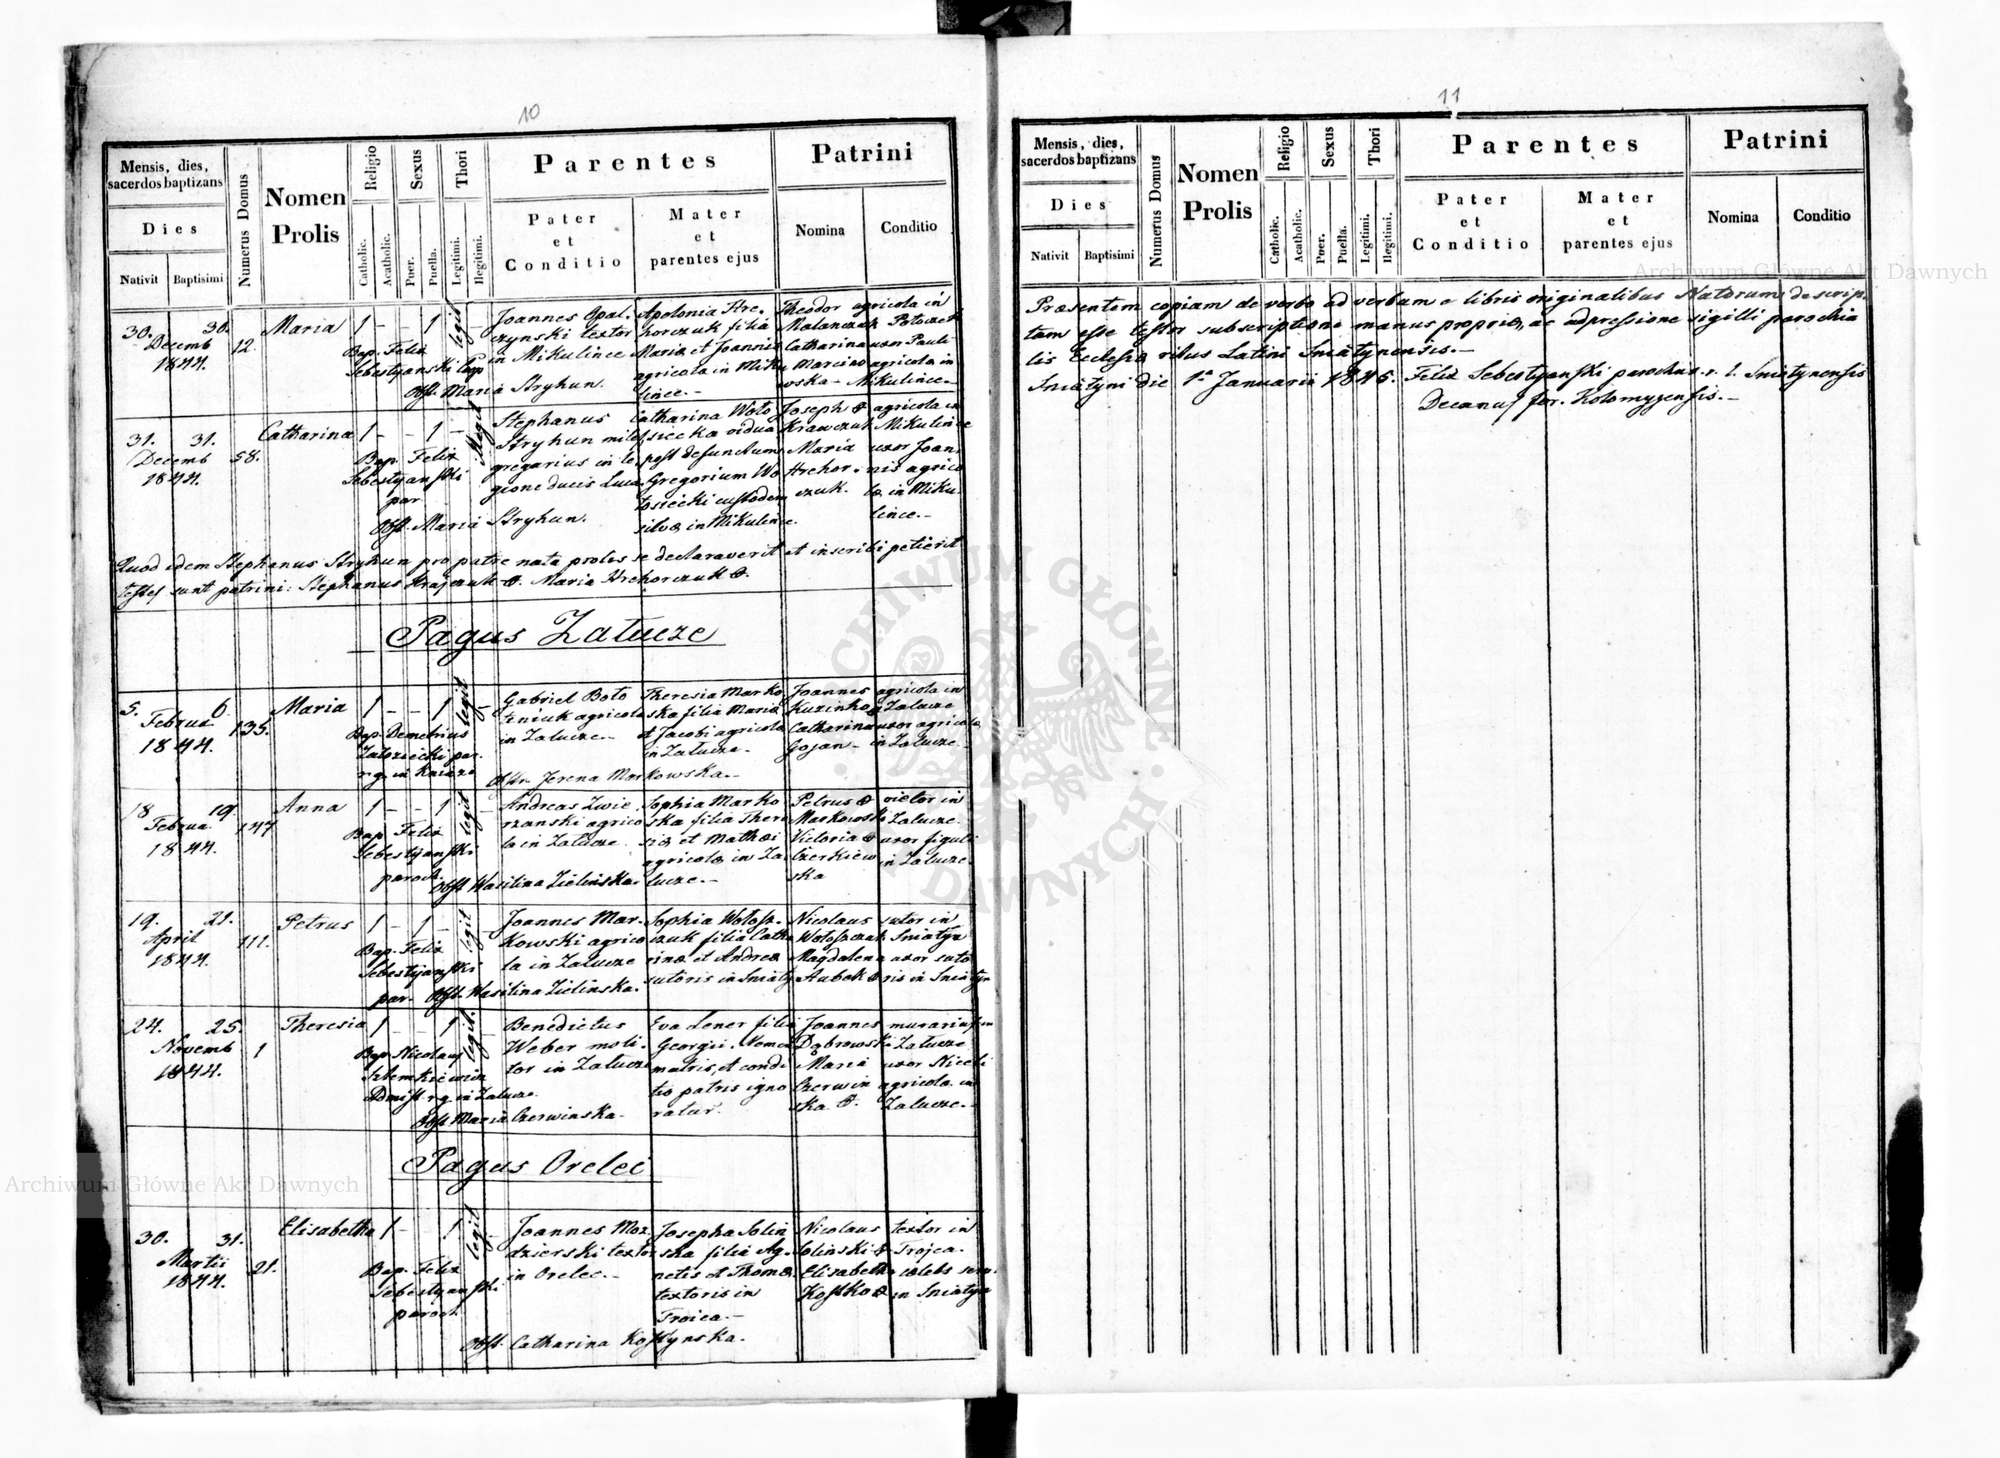 10
Mensis, dies,
sacerdos baptizans
Dies
Nativit
Baptismi
Numerus Domus
Nomen
Prolis
Religio
Catholic.
Acatholic.
Sexus
Puer.
Puella.
Thori
Legitimi.
Illegitimi.
Parentes
Pater
et
Conditio
Mater
et
parentes ejus
Patrini
Nomina
Conditio
30. 30.
Decemb
1844.
12.
Maria
1 - - 1
legit
Bap. Felix
Sebestyanski
Obst. Maria Stryhun.
Joannes Opal.
czynski textor
in Mikulince
Apolonia Hre.
horczuk filia
Maria et Joannis
agricola in Miku
lince.-
Theodor
Malanczuk
Catharina
Marcino
wska-
agricola in
Potoczek
uxor Pauli
agricola in
Mikulince-
31. 31.
Decemb
1844.
58.
Catharina
1 - - 1 -
illegit
Bap. Felix
Sebestyanski
par
Obst. Maria Stryhun.
Stephanus
Stryhun miles
gregarius in le
gione ducis Luca
Catharina Woło
siecka vidua
post defunctum
Gregorium Wo
łosiecki custodem
silva in Mikulince.
Joseph
Krawczuk
Maria
Hrehor.
czuk.
agricola in
Mikulince
uxor Joan
nis agrico
la in Miku.
lince.-
Quod idem Stephanus Stryhun pro patre nata proles se declaraverit et inscribi petierit
testes sunt patrini: Stephanus Krajczuk +. Maria Hrehorczuk +.
Pagus Załucze
5. 6.
Februa
1844.
135.
Maria
1 - - 1
legit
Bap. Demetrius
Załoziecki par.
r. g. in Kniaze
Gabriel Boto
teniuk agricola
in Załucze.-
Obstr. Jerena Markowska.-
Theresia Marko
ska filia Maria
et Jacobi agricola
in Załucze.-
Joannes
Kuzinko
Catharina
Gojan-
agricola in
Załucze
uxor agricola
in Załucze.-
18 19.
Februa.
1844.
147
Anna
1 - - 1 -
legit
Bap. Felix
Sebestyanski
paroch.
Obst. Wasilina Zielinska.
Andreas Zwie
rzanski agrico
la in Załucze
Sophia Marko
ska filia There
sia et Mathæi
agricola in Za
lucze.-
Petrus +
Markowski
Victoria +
Czerkiew
ska
victor in
Załucze.
uxor figuli
in Załucze.
19. 21.
April
1844.
111.
Petrus
1 - 1 -
legit
Bap. Felix
Sebestyanski
par. Obst. Wasilina Zielinska.
Joannes Mar.
kowski agrico
la in Załucze
Sophia Wołosz.
czuk filia Catha
rina et Andrea
sutoris in Sniatyn
Nicolaus
Wołoszczuk
Magdalena
Hubak +
sutor in
Sniatyn
uxor suto
ris in Sniatyn
24. 25.
Novemb
1844.
1
Theresia
1 - - 1 -
legit.
Bap. Nicolaus
Szlemkiewicz
Admist. r. g. in Załucze.
Obst Maria Czerwinska-
Benedictus
Weber moli.
tor in Załucze
Eva Lener filia
Georgii. Nomen
matris, et condi
tio patris igno
ratur.
Joannes
Dąbrowski
Maria
Czerwin
ska +.
murarius in
Załucze
uxor Nicoli
agricola in
Załucze.-
Pagus Orelec
30. 31.
Martii
1844.
21.
Elisabetha
1 - 1
legit
Bap. Felix
Sebestyanski
paroch
Joannes Moz
dzierski textor
in Orelec.-
Josepha Solin
ska filia Ag.
netis et Thoma
textoris in
Troica.-
Obst. Catharina Kostynska.
Nicolaus
Solinski +
Elisabetha
Kostko +
textor in
Trojca.
cælebs
in Sniatyn
11
Mensis, dies,
sacerdos baptizans
Dies
Nativit
Baptismi
Numerus Domus
Nomen
Prolis
Religio
Catholic.
Acatholic.
Sexus
Puer.
Puella.
Thori
Legitimi.
Illegitimi.
Parentes
Pater
et
Conditio
Mater
et
parentes ejus
Patrini
Nomina
Conditio
Præsentem copiam de verbo ad verbum e libris originalibus Natorum descrip.
tam esse testor subscriptione manus propria, ac adpressione sigilli parochia
lis Ecclesia ritus Latini Sniatynensis.-
Sniatyni die 1a Januarii 1845. Felix Sebestyanski parochus r. l. Sniatynensis
Decanus for. Kolomyensis.-
Archiwum Główne Akt Dawnych
Archiwum Główne Akt Dawnych
ARCHIWUM GŁÓWNE AKT DAWNYCH